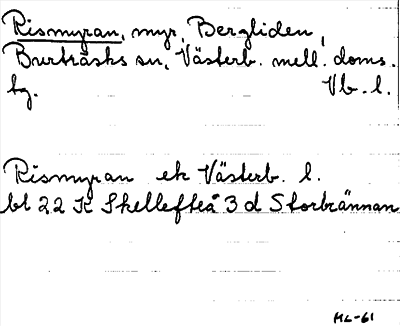 Rismyran, myr, Bergliden,
Burträsks sn, Västerb. mell. doms.
tg. Vb. l.
Rismyran ek Västerb. l.
bl 22 K Skellefteå 3 d Storbrännan
ML-61